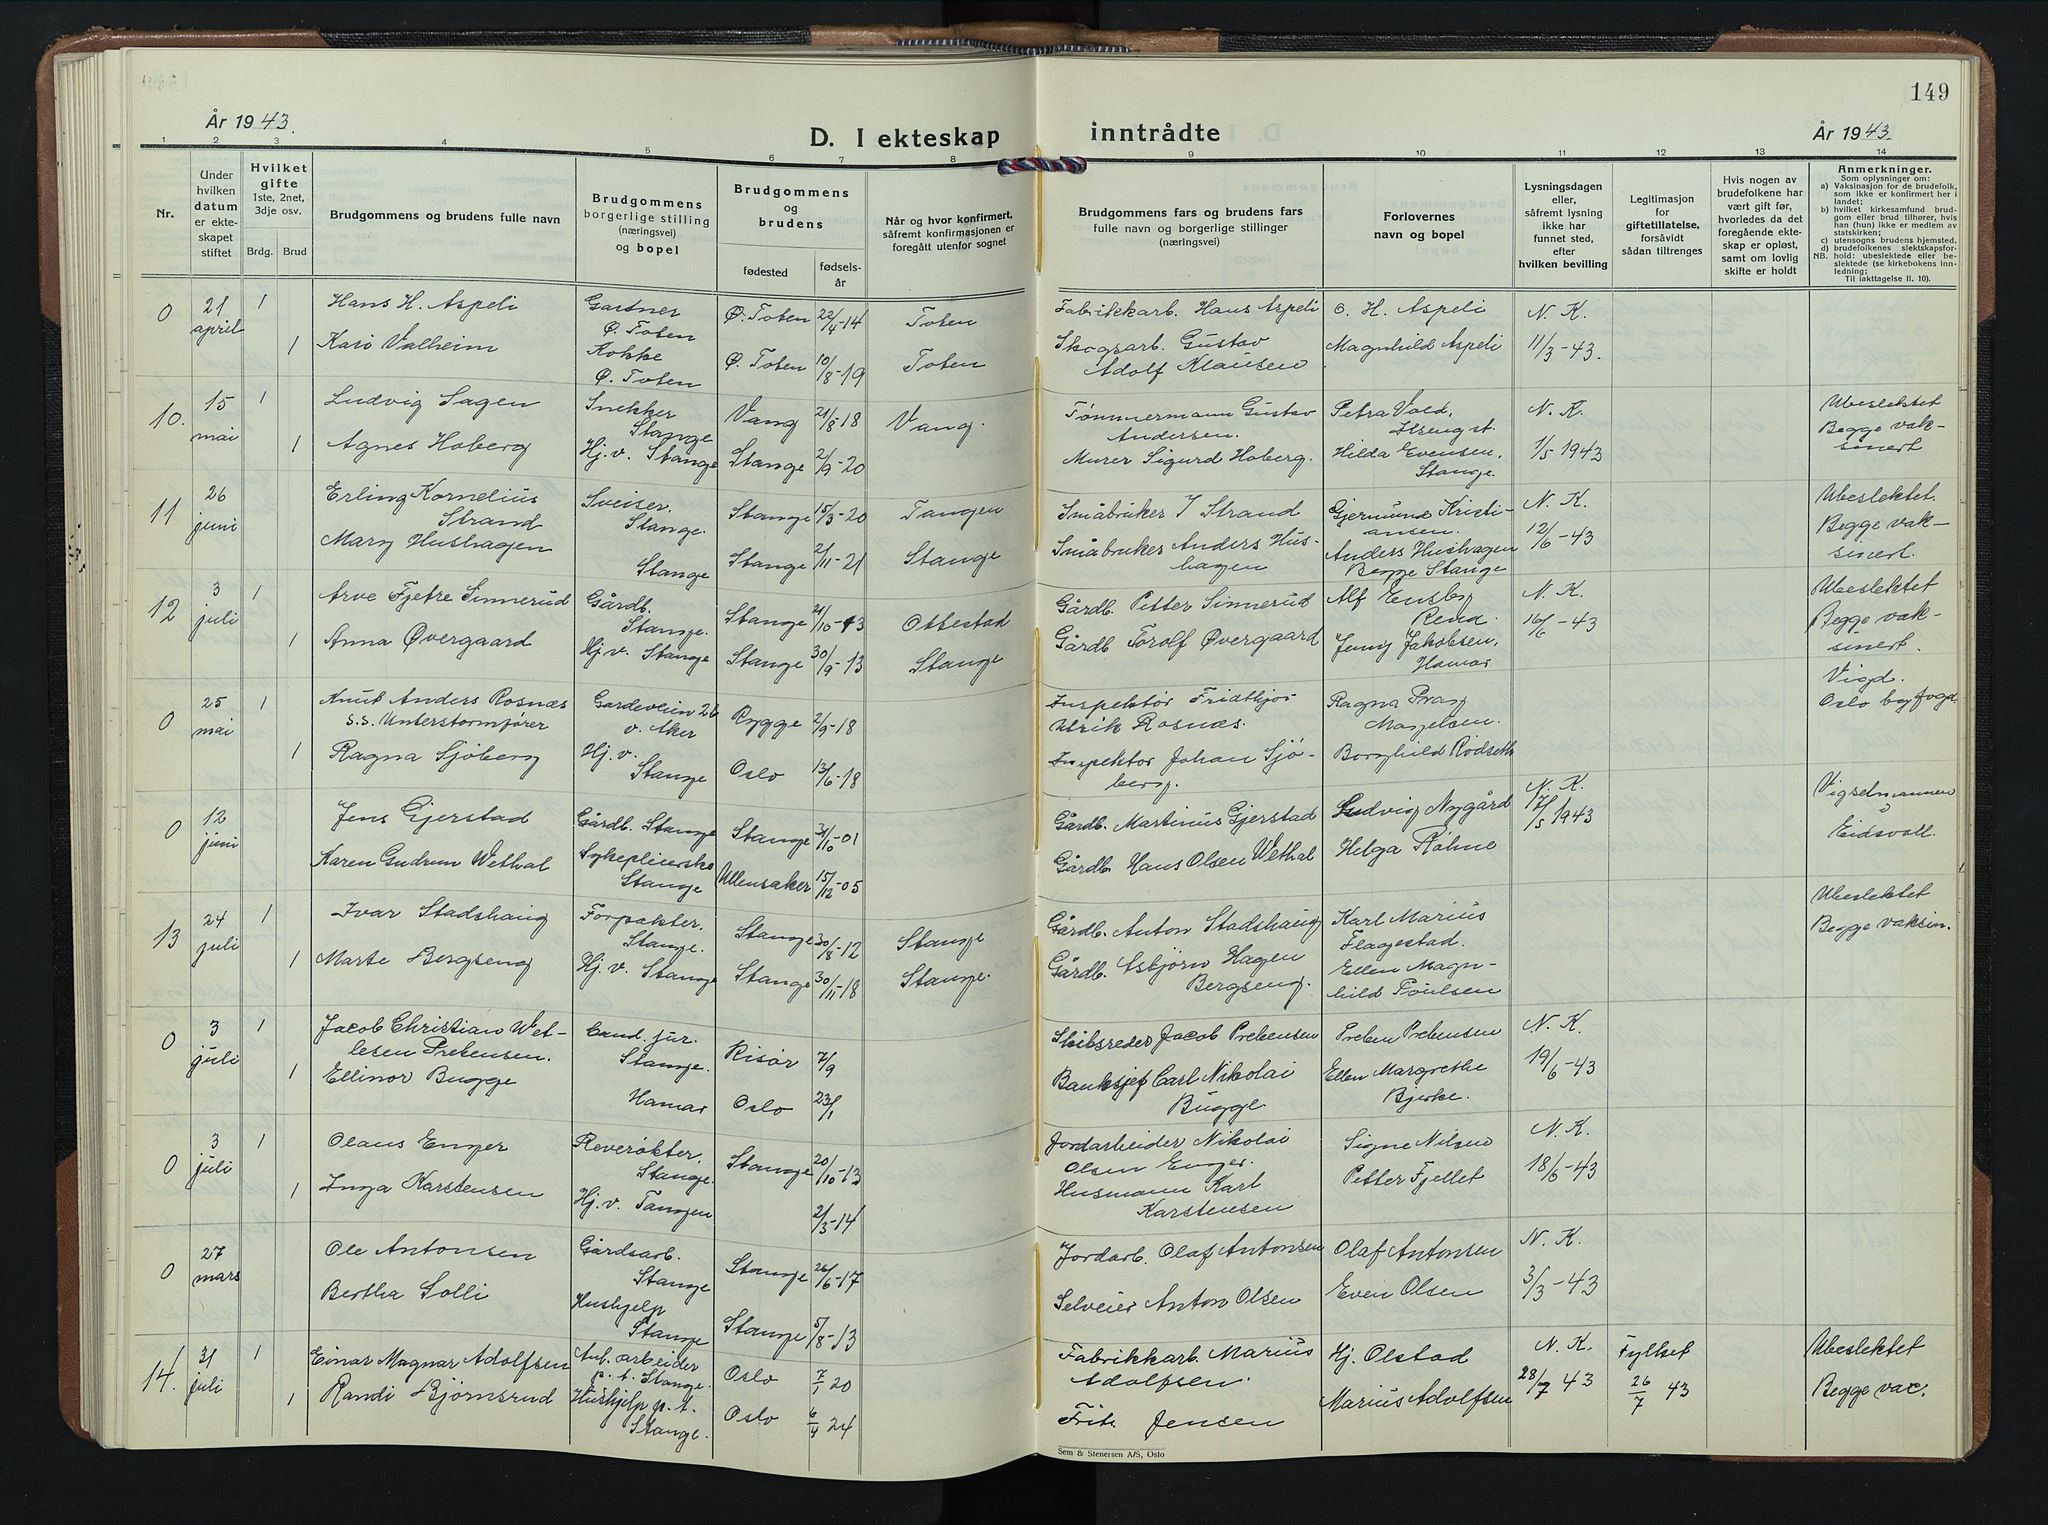 149
År 1943.
D. I ekteskap inntrådte
År 1943.
1 2 3 4 5 6 7 8 9 10 11 12 13 14
Nr.
Under hvilken datum er ekteskapet stiftet
Hvilket gifte 1ste, 2net, 3dje osv.
Brdg. Brud
Brudgommens og brudens fulle navn
Brudgommens borgerlige stilling (næringsvei) og bopel
Brudgommens og brudens
fødested
fødselsår
Når og hvor konfirmert, såfremt konfirmasjonen er foregått utenfor sognet
Brudgommens fars og brudens fars fulle navn og borgerlige stillinger (næringsvei)
Forlovernes navn og bopel
Lysningsdagen eller, såfremt lysning ikke har funnet sted, efter hvilken bevilling
Legitimasjon for giftetillatelse, forsåvidt sådan tiltrenges
Hvis nogen av brudefolkene har vært gift før, hvorledes da det foregående ekteskap er opløst, samt om lovlig skifte er holdt
Anmerkninger.
Som oplysninger om:
a) Vaksinasjon for de brudefolk, som ikke er konfirmert her i landet;
b) hvilket kirkesamfund brudgom eller brud tilhører, hvis han (hun) ikke er medlem av statskirken;
c) utensogns brudens hjemsted.
d) brudefolkenes slektskapsforhold: ubeslektede eller beslektede (se kirkebokens innledning;
NB. Til iakttagelse II. 10).
0 21 april 1 Hans H. Aspeli Gartner Ø. Toten Ø. Toten 22/4-14 Toten Fabrikkarb. Hans Aspeli O. H. Aspeli N. K.
1 Kari Valheim Kokke Ø. Toten Ø. Toten 10/8-19 Toten Skogsarb. Gustav Adolf Klausen Magnhild Aspeli 11/3-43.
10. 15 mai 1 Ludvig Sagen Snekker Stange Vang 21/8-18 Vang. Tømmermann Gustav Andersen. Petra Vold, Ilseng st. N. K. Ubeslektet
1 Agnes Hoberg Hj. v. Stange Stange 2/9-20 Murer Sigurd Hoberg. Hilda Evensen, Stange. 1/5 1943 Begge vaksinert
11 26 juni Erling Kornelius Strand Sveiser, Stange. Stange 15/3-20 Tangen Småbruker I Strand Gjermund Kristiansen N. K. Ubeslektet.
Mary Hushagen Stange Stange 2/11-21 Stange Småbruker Anders Hushagen Anders Hushagen Begge Stange 12/6-43 Begge vaksinert.
12 3 juli 1 Arve Fjetre Sinnerud Gårdb. Stange. Stange 21/10-13 Ottestad Gårdb. Petter Sinnerud Alf Ensby Rena. N. K. Ubeslektet
1 Anna Øvergaard Hj. v. Stange Stange 30/9-13 Stange Gårdb Torolf Øvergaard Jenny Jakobsen, Hamar 16/6-43 Begge vaksinert.
0 25 mai 1 Knut Anders Rosnæs S.S. Unterstormfører Gardeveien 26 v. Aker Rygge 2/9-18 Inspektør Fridthjof Ulrik Rosnæs. Ragna Magelsen. Vigd. Oslo byfogd.
1 Ragna Sjöberg Hj. v. Stange Oslo 13/6-18 Inspektør Johan Sjöberg. Borghild Rødseth
0 12 juni Jens Gjerstad Gårdb. Stange Stange 31/10-01 Gårdb. Martinus Gjerstad Ludvig Nygård N. K. 17/5 1943 Vigselmannen i Eidsvoll.
Karen Gudrun Wethal Sykepleierske Stange Ullensaker 15/12-05 Gårdb. Hans Olsen Wethal Helga Røhne
13 24 juli 1 Ivar Stadshaug Forpakter, Stange. Stange 30/8-12 Stange Gårdb. Anton Stadshaug Karl Marius Flagestad. Ubeslektet
1 Marte Bergseng Hj. v. Stange Stange 30/11-18 Stange. Gårdb. Asbjørn Hagen Bergseng. Ellen Magnhild Poulsen Begge vaksin.
0 3 juli 1 Jacob Christian Wetlesen Prebensen. Cand. jur. Stange. Risør 7/9 Skibsreder Jacob Prebensen Preben Prebensen N. K.
1 Ellinor Bugge Hamar Oslo 23/1 Banksjef Carl Nikolai Bugge. Ellen Margrethe Bjerke. 19/6-43
0 3 juli 1 Olaus Enger Reverøkter, Stange. Stange 20/10-13 Jordarbeider Nikolai Olsen Enger. Signe Nilsen N. K.
1 Inga Karstensen Hj. v. Tangen 2/3-14 Husmann Karl Karstensen Petter Fjellet 18/6-43
0 27 mars Ole Antonsen Gårdsarb. Stange Stange 26/6-17 Jordarb. Olaf Antonsen Olaf Antonsen N. K.
Bertha Solli Hushjelp Stange Stange 5/8-13 Selveier Anton Olsen Even Olsen 3/3-43
14. 31 juli 1 Einar Magnar Adolfsen Anl. arbeider p. t. Stange. Oslo 7/1 20 Fabrikkarb. Marius Adolfsen. Hj. Olstad N. K. Fylket Ubeslektet
1 Randi Bjørnsrud Hushjelp p. t. Stange. Oslo 6/4 24 Fritz Jensen Marius Adolfsen 28/7 43 26/7 43 Begge vac.
Sem & Stenersen A/S, Oslo